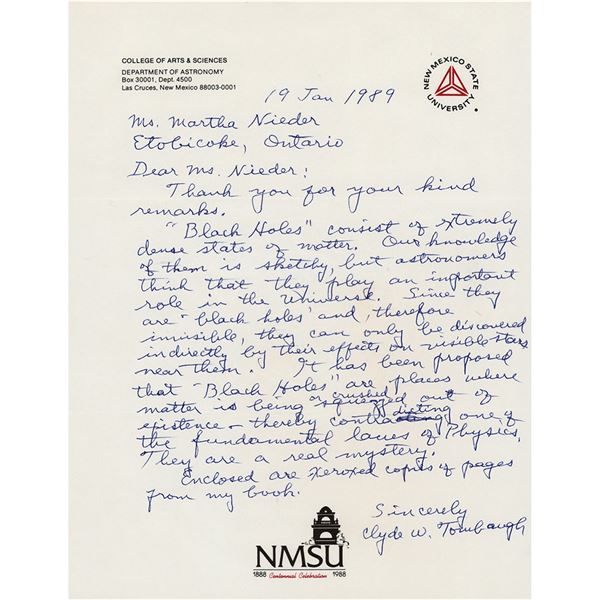 COLLEGE OF ARTS & SCIENCES
DEPARTMENT OF ASTRONOMY
Box 30001, Dept. 4500
Las Cruces, New Mexico 88003-0001
NEW MEXICO STATE UNIVERSITY
19 Jan 1989
Ms. Martha Nieder
Etobicoke, Ontario
Dear Ms. Nieder:
Thank you for your kind
remarks.
"Black Holes" consist of extremely
dense states of matter. Our knowledge
of them is sketchy, but astronomers
think that they play an important
role in the Universe. Since they
are "black holes" and, therefore
invisible, they can only be discovered
indirectly by their effects on visible stars
near them. It has been proposed
that "Black Holes" are places where
matter is being or crushed squeezed out of
existence - thereby contradicting one of
the fundamental laws of Physics.
They are a real mystery.
Enclosed are xeroxed copies of pages
from my book.
Sincerely
Clyde W. Tombaugh
NMSU
1888 Centennial Celebration 1988